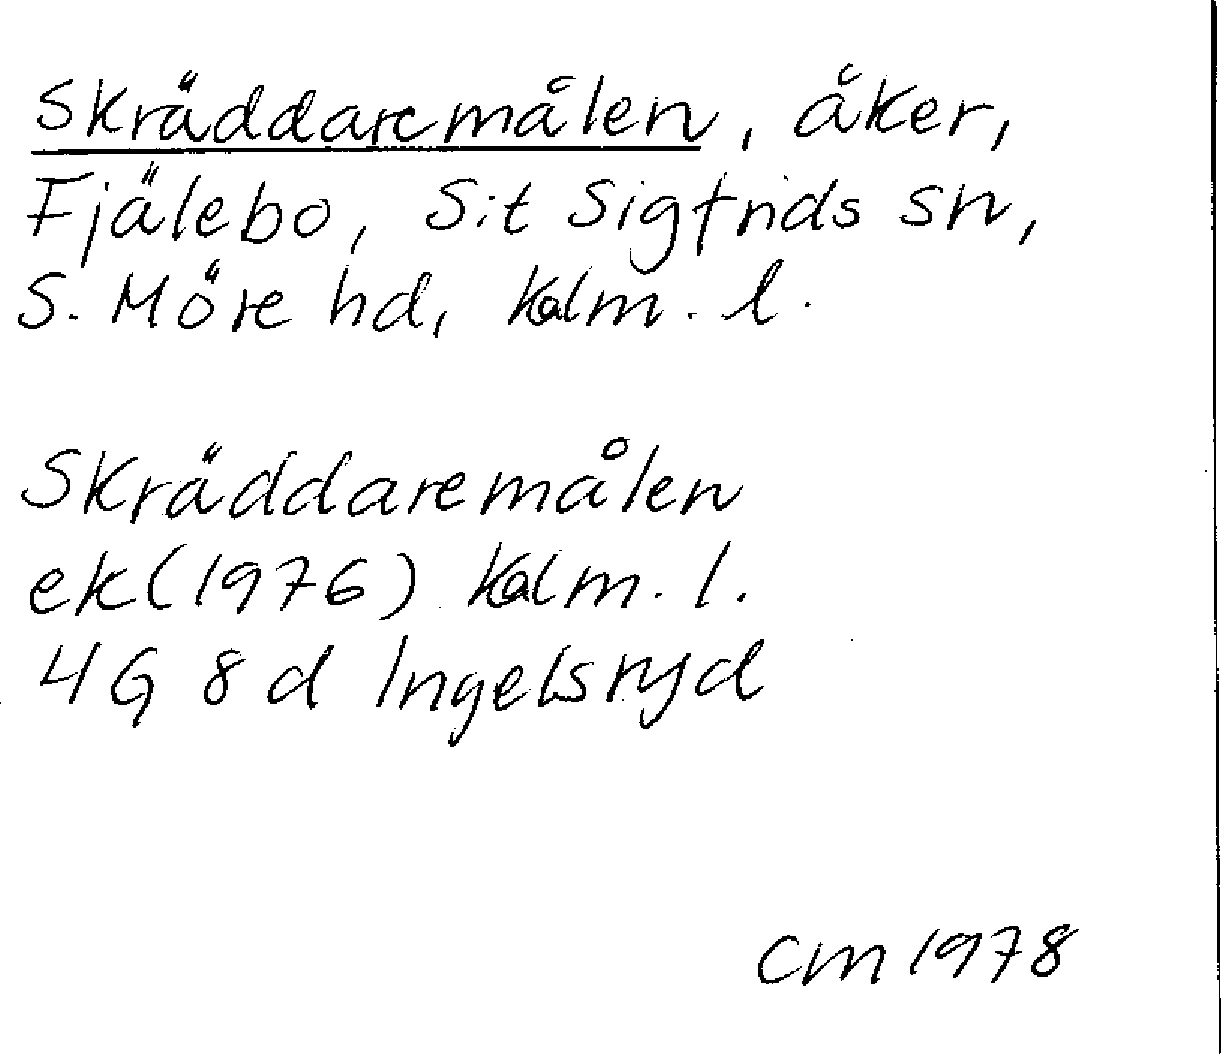 Skräddaremålen, åker,
Fjälebo, S:t Sigfrids sn,
S. Möre hd, Kalm. l.
Skräddaremålen
ek (1976) Kalm. l.
4G 8d Ingelsryd
CM 1978